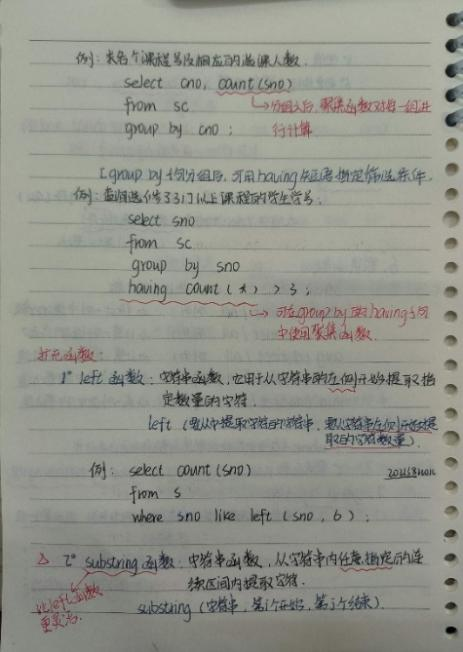 例：求各个课程号及相应的选课人数.
select cno, count(sno)
from sc → 分组之后, 聚集函数对每一组进
group by cno ; 行计算
[group by 子句分组后, 可用having短语指定筛选条件.
例：查询选修了3门以上课程的学生学号.
select sno
from sc
group by sno
having count(*) > 3 ;
→ 可在group by 的 having子句
中使用聚集函数.
补充函数:
1° left 函数 : 字符串函数, 它用于从字符串的左侧开始提取指
定数量的字符.
left (要从中提取字符的字符串, 要从字符串左侧开始提
取的字符数量).
例: select count(sno)
from s
where sno like left (sno, 6) ;
△ 2° substring 函数: 字符串函数, 从字符串内任意指定的连
续区间内提取字符.
比left函数
更灵活.
substring (字符串, 第i个开始, 第j个结束).